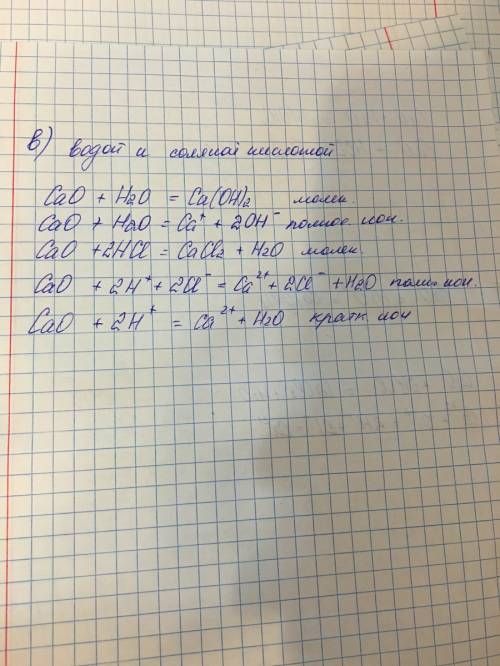 в) водой и соляной кислотой
CaO + H2O = Ca(OH)2 молек.
CaO + H2O = Ca⁺ + 2OH⁻ полное ион.
CaO + 2HCl = CaCl2 + H2O молек.
CaO + 2H⁺ + 2Cl⁻ = Ca²⁺ + 2Cl⁻ + H2O полн. ион.
CaO + 2H⁺ = Ca²⁺ + H2O кратк. ион